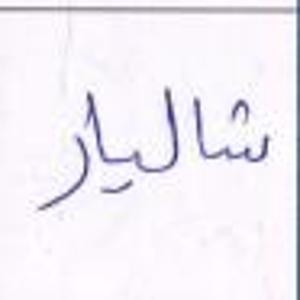 شاليار